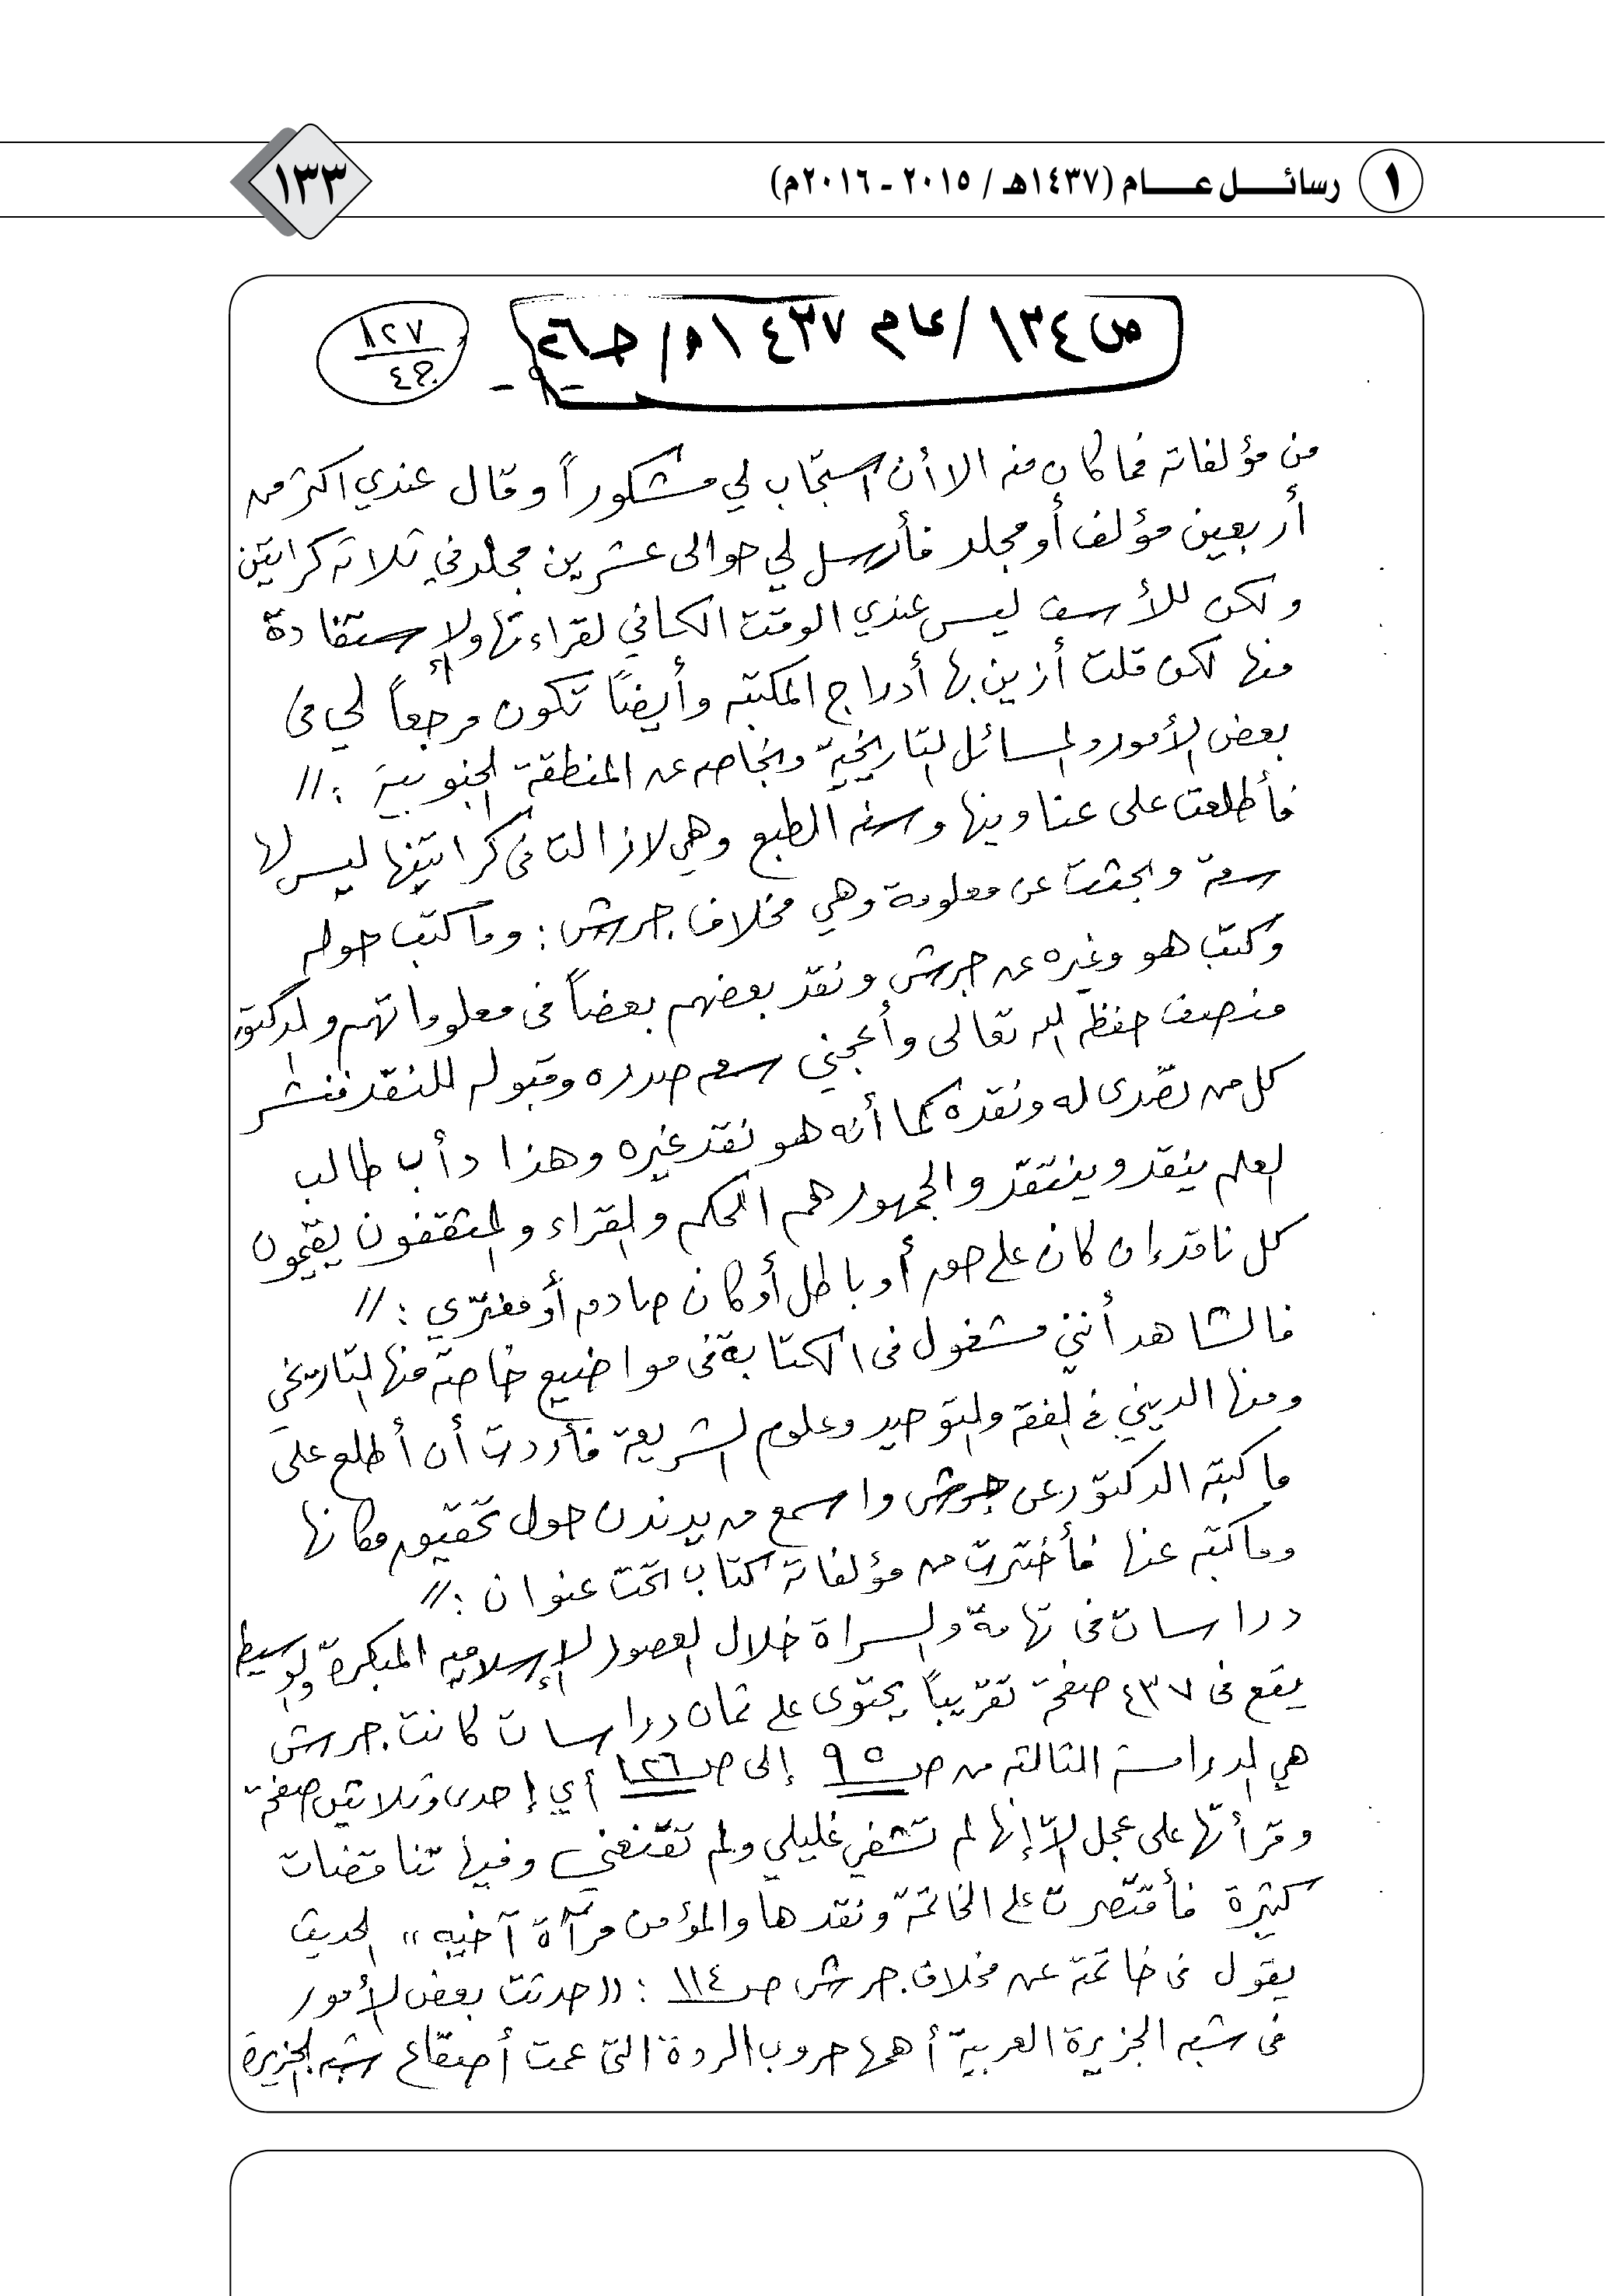 ١ رسائـــل عـــام (١٤٣٧هـ / ٢٠١٥ - ٢٠١٦م)
١٣٣
ص ١٣٤ /عام ١٤٣٧ه/ ح٢٦
١٢٧
ج٤
من مؤلفاته فما كان منه الا أن استجاب لي مشكوراً وقال عندي اكثر من
أربعين مؤلف أو مجلد فأرسل لي حوالى عشرين مجلد في ثلاثة كراتين
ولكن للأسف ليس عندي الوقت الكافي لقراءتها والإستفادة
منها لكن قلت أزين بها أدراج المكتبه وأيضاً تكون مرجعاً لي في
بعض الأمور والمسائل التاريخية وبخاصه عن المنطقة الجنوبية ://
فأطلعت على عناوينها وسنه الطبع وهي لازالت في كراتينها ليس لها
سعة وبحثت عن معلومة وهي مخلاف جرش : وما كتب حوله
وكتب هو وغيره عن جرش ونقد بعضهم بعضاً في معلوماتهم والدكتور
منصف حفظه الله تعالى وأعجبني سعه صدره وقبوله للنقد فنشر
كل من تصّدى له ونقده كما أنه هو نقد غيره وهذا دأب طالب
العلم ينقد وينتقد والجمهور هم الحكم والقراء والمثقفون يقيّمون
كل ناقد إن كان على حق أو باطل أو كان صادم أو مفترّي ://
فالشاهد أنني مشغول في الكتابة في مواضيع خاصة منها التاريخي
ومنها الديني في الفقه والتوحيد وعلوم الشريعة فأردت أن أطلع على
ما كتبه الدكتور عن جرش واسمع من يدندن حول تحقيق مكانها
وما كتبه عنها فأخترت من مؤلفاته كتاب تحت عنوان ://
دراسات في تهامة والسراة خلال العصور الإسلاميه المبكرة والوسيط
يقع في ٤٣٧ صفحة تقريباً يحتوى على ثمان دراسات كانت جرش
هي الدراسة الثالثة من صـ٩٥ إلى صـ١٢٦ أي إحدى وثلاثين صفحة
وقرأتها على عجل إلاّ إنها لم تشفي غليلي ولم تقنعني وفيها تناقضات
كثيرة فأقتصرت على الخاتمة ونقدها والمؤمن مرآة آخيه،، الحديث
يقول في خاتمة عن مخلاف جرش صـ١١٤ : ((حدثت بعض الأمور
في شبه الجزيرة العربية أهمها حروب الردة التي عمت أصقاع شبه الجزيرة